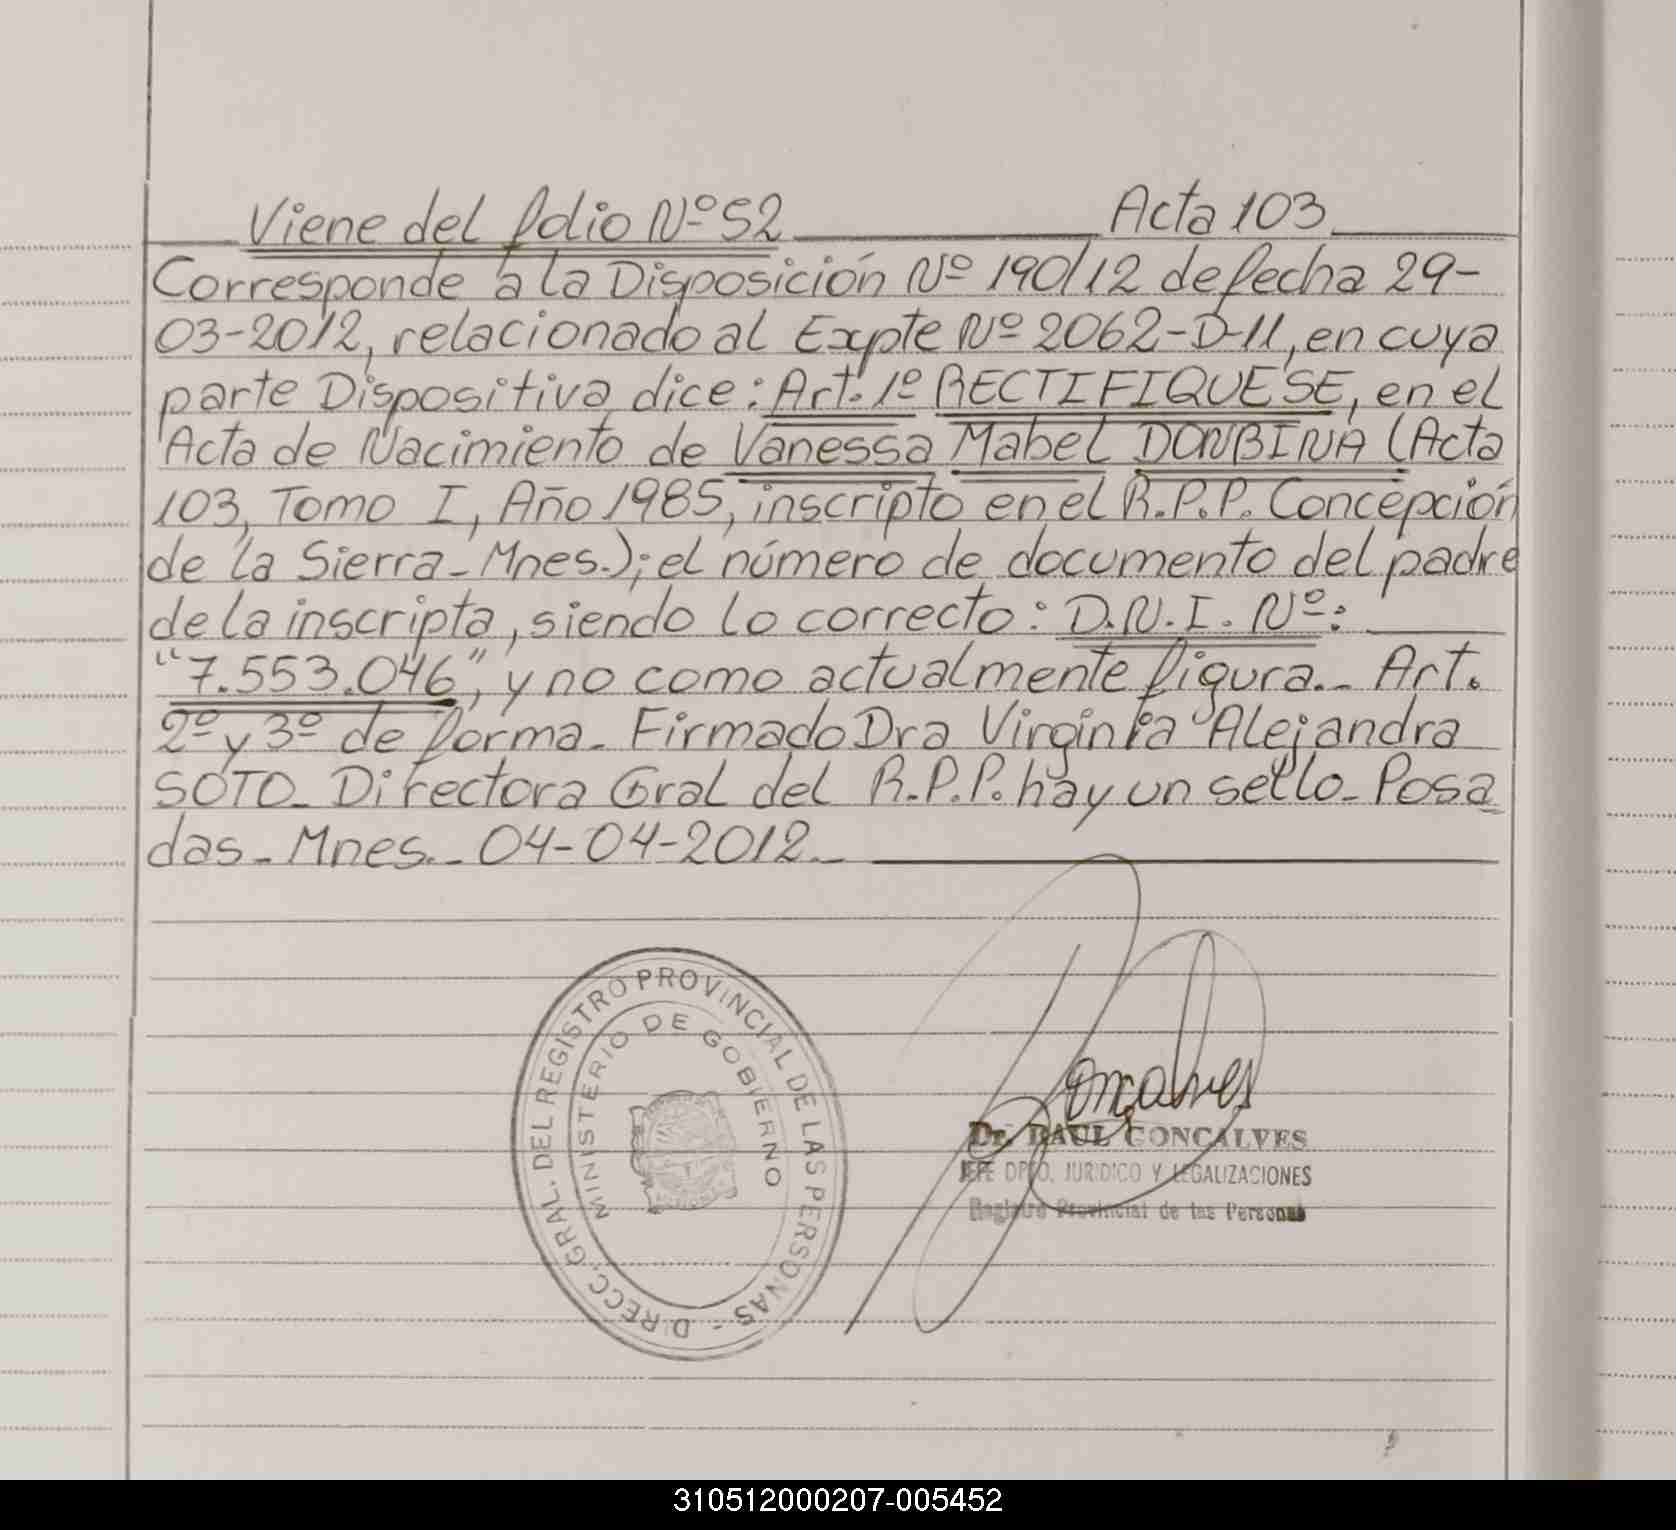 Viene del folio Nº 52 Acta 103
Corresponde a la Disposición Nº 190/12 de fecha 29-
03-2012, relacionado al Expte Nº 2062-D-11, en cuya
parte Dispositiva dice: Art. 1º RECTIFIQUESE, en el
Acta de Nacimiento de Vanessa Mabel DONBINA (Acta
103, Tomo I, Año 1985, inscripto en el R.P.P. Concepción
de la Sierra - Mnes.); el número de documento del padre
de la inscripta, siendo lo correcto: D.N.I. Nº:
"7.553.046", y no como actualmente figura.- Art.
2º y 3º de forma - Firmado Dra Virginia Alejandra
SOTO - Directora Gral del R.P.P. hay un sello - Posa
das - Mnes. - 04-04-2012 -
DIRECC. GRAL. DEL REGISTRO PROVINCIAL DE LAS PERSONAS -
MINISTERIO DE GOBIERNO
Goncalves
Dr. RAUL GONCALVES
JEFE DPTO. JURIDICO Y LEGALIZACIONES
Registro Provincial de las Personas
310512000207-005452